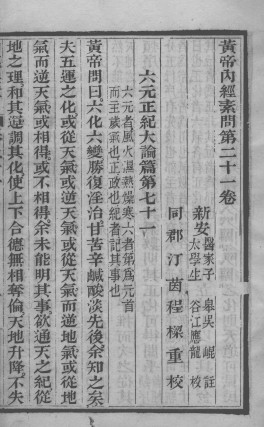 黃帝內經素問第二十一卷
新安醫家子臯吳崐註
太學生谷江應龍校
同郡汀茵程樑重校
六元正紀大論篇第七十一
六元者風火濕熱燥寒六者爲元首
而王歲氣也正政也紀者記其事也
黃帝問曰六化六變勝復淫治甘苦辛鹹酸淡先後余知之矣
夫五運之化或從天氣或從天氣而逆地氣或從地
氣而逆天氣或相得或不相得余未能明其事欲通天之紀從
地之理和其運調其化使上下合德無相奪倫天地升降不失